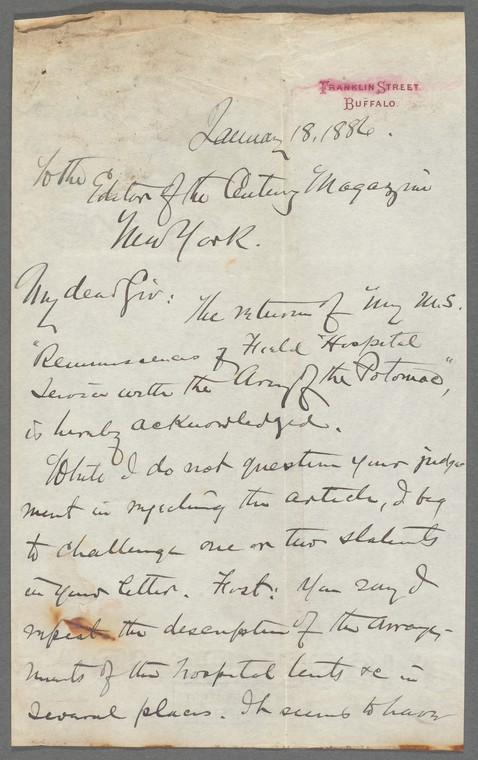 FRANKLIN STREET.
BUFFALO.
January 18, 1886.
To the Editor of the Century Magazine
New York.
My dear Sir: The return of "my M.S.
"Reminiscences of Field Hospital
Service with the Army of the Potomac",
is hereby acknowledged.
While I do not question your judge-
ment in rejecting the article, I beg
to challenge one or two statents
in your letter. First: You say I
repeat the description of the arrange-
ments of the hospital tents &c in
several places. It seems to have